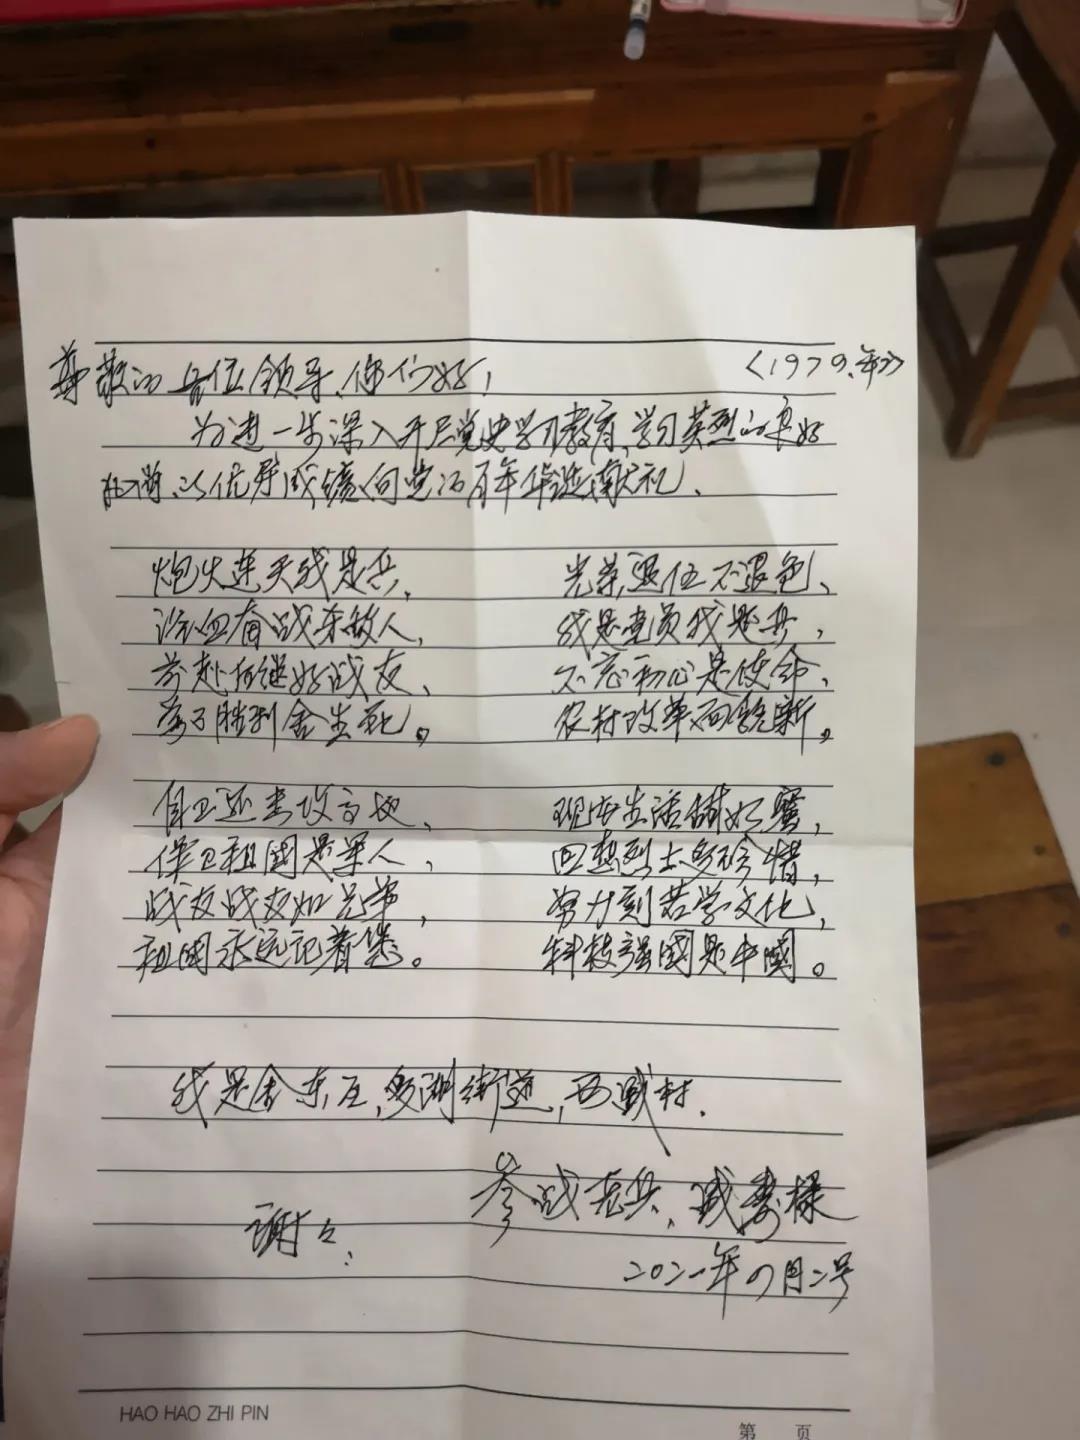 尊敬的各位领导、你们好， 〈1979.年〉
为进一步深入开展党史学习教育、学习英烈的良好
以优异成绩向党的百年华诞献礼、
炮火连天线是兵，
浴血奋战杀敌人，
前赴后继好战友、
为了胜利舍生死。
光荣退伍不退色、
我是党员我是兵，
不忘初心是使命、
农村改革面貌新。
自卫还击攻高地、
保卫祖国是军人，
战友战友如兄弟，
祖国永远记着您。
现在生活甜如蜜，
回想烈士多珍惜，
努力刻苦学文化，
科技强国是中国。
我是金东区，多湖街道，西盛村．
参战老兵、盛樟
谢々．
二〇二一年四月二号
HAO HAO ZHI PIN
第 页